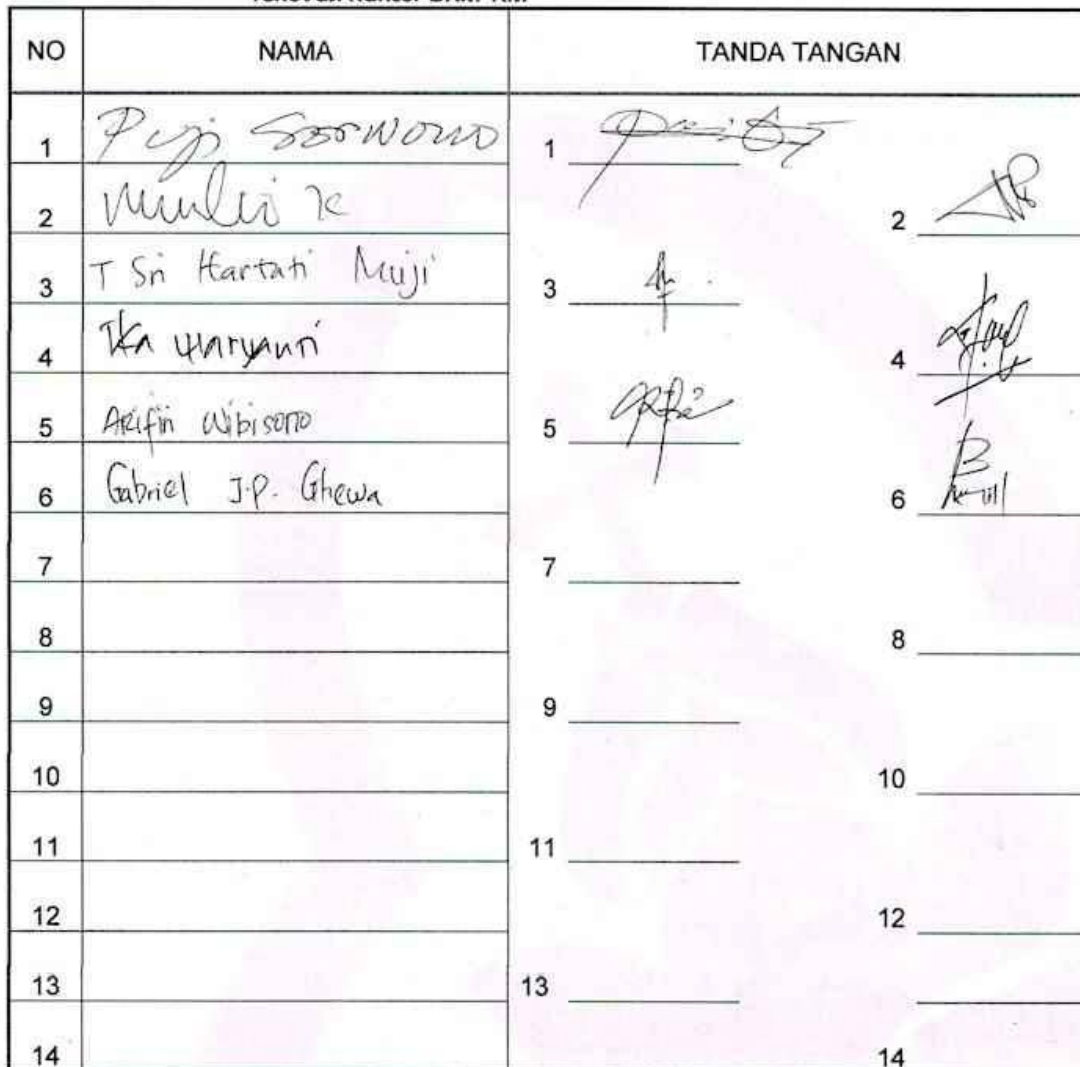 NO NAMA TANDA TANGAN
1 Puji Sarwono 1
2 Mulia K 2
3 T Sri Hartati Muji 3
4 Ika Haryanti 4
5 Arifin Wibisono 5
6 Gabriel J.P. Ghewa 6
7 7
8 8
9 9
10 10
11 11
12 12
13 13
14 14